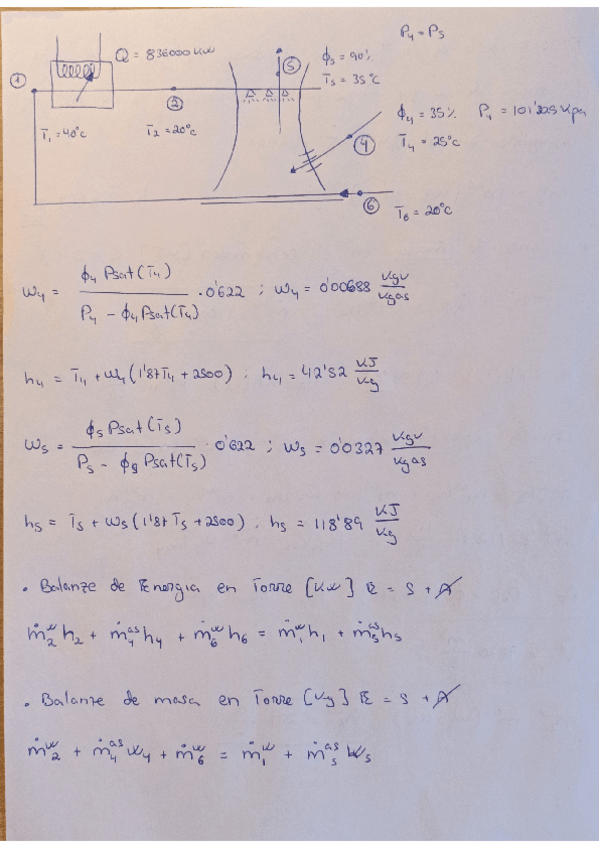 P₄ = P₅
Q = 836000 KW
ϕ₅ = 90%
T₅ = 35°C
①
②
⑤
T₁ = 40°C
T₂ = 20°C
ϕ₄ = 35%
P₄ = 101'325 Kpa
④
T₄ = 25°C
⑥
T₆ = 20°C
W₄ = ϕ₄ Psat(T₄) / P₄ - ϕ₄ Psat(T₄) · 0'622 ; W₄ = 0'00688 Kgv/Kgas
h₄ = T₄ + W₄ (1'87T₄ + 2500) ; h₄ = 42'52 KJ/Kg
W₅ = ϕ₅ Psat(T₅) / P₅ - ϕ₅ Psat(T₅) · 0'622 ; W₅ = 0'0327 Kgv/Kgas
h₅ = T₅ + W₅ (1'87 T₅ + 2500) ; h₅ = 118'89 KJ/Kg
• Balanze de Energia en Torre [KW] E = S + A
ṁ₂ʷ h₂ + ṁ₄ᵃˢ h₄ + ṁ₆ʷ h₆ = ṁ₁ʷ h₁ + ṁ₅ᵃˢ h₅
• Balanze de masa en Torre [Kg] E = S + A
ṁ₂ʷ + ṁ₄ᵃˢ W₄ + ṁ₆ʷ = ṁ₁ʷ + ṁ₅ᵃˢ W₅